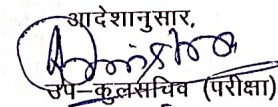 आदेशानुसार,
उप-कुलसचिव (परीक्षा)